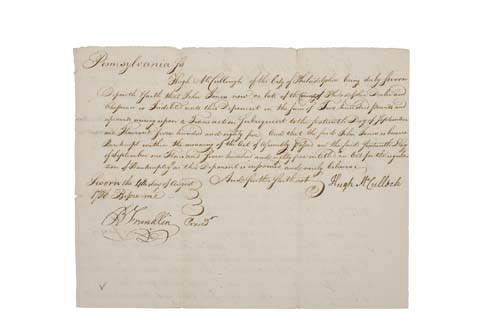 Pennsylvania ss
Hugh McCullough of the City of Philadelphia being duly sworn
Deposeth & saith that John Jones now or late of the Philadelphia Dealer and
Chapman is Indebted unto this Deponent in the sum of Two hundred pounds and
upwards arising upon a Transaction Subsequent to the fourteenth Day of September
one Thousand seven hundred and eighty five. And that the said John Jones is become
Bankrupt within the meaning of the Act of Assembly passed on the said fourteenth Day
of September one Thousand seven hundred and eighty five entitled an Act for the regulation
of Bankruptcy as this Deponent is informed and verily believes.
And further saith not.
Hugh McCulloch
Sworn the 4th day of August
1786 Before me
B Franklin Presidt